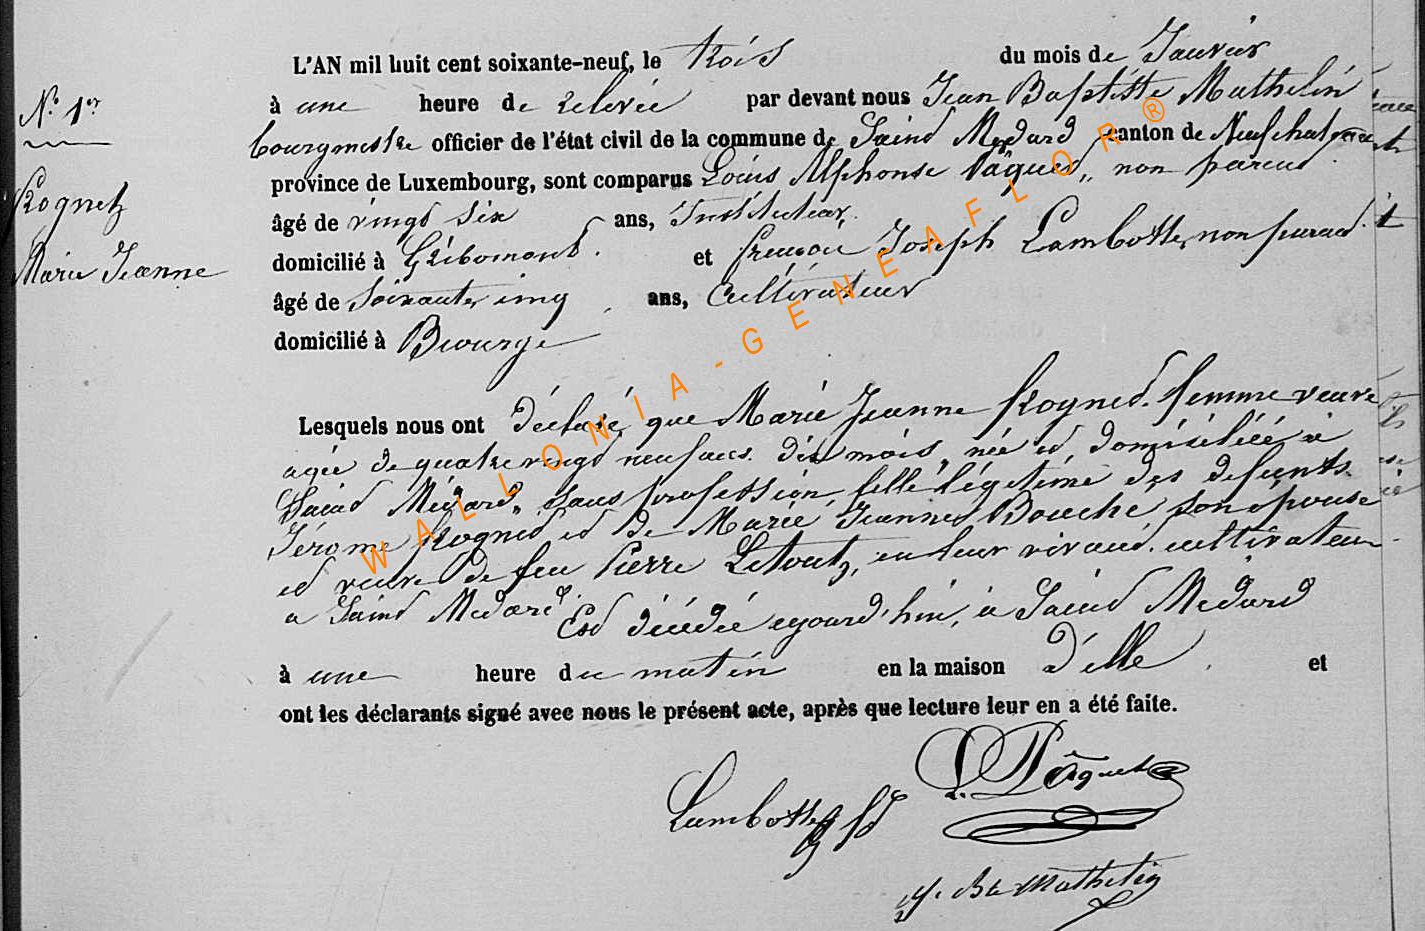 N° 1er
Rognet
Marie Jeanne
L'AN mil huit cent soixante-neuf, le trois du mois de Janvier
à une heure de relevée par devant nous Jean Baptiste Mathelin
bourgmestre officier de l'état civil de la commune de Saind Medard canton de Neufchateau
province de Luxembourg, sont comparus Louis Alphonse Pâquet, non parent
âgé de vingt six ans, Instituteur
domicilié à Gribomont. et François Joseph Lambotte, non parent.
âgé de Soixante cinq ans, Cultivateur
domicilié à Biourge
Lesquels nous ont déclaré que Marie Jeanne Rogned. femme veuve
agée de quatre vingd neuf ans dix mois, née ed domiciliée à
Saind Médard, sans profession, fille légetime des defunts
Jérome Rogned ed de Marie Jeanne Bouché son epouse
ed veuve de feu Pierre Letoutz, en leur vivand. cultivateur
a Saind Medard. Esd décédée ajourd'hui, à Saind Medard
à une heure du matin en la maison d'elle. et
ont les déclarants signé avec nous le présent acte, après que lecture leur en a été faite.
L. Pâquet
Lambotte
J. Bte Mathelin
WALLONIA-GENEAFLOR®